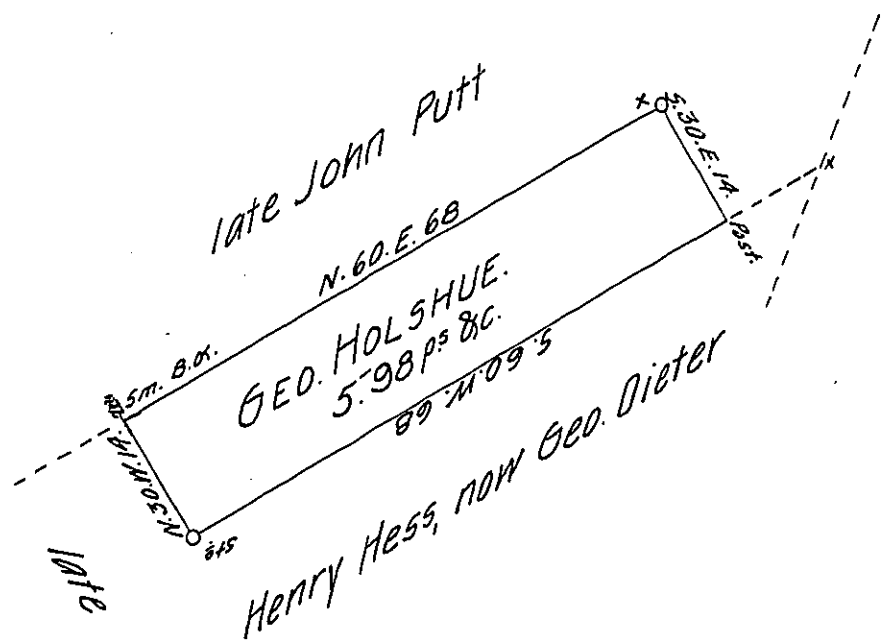 late John Putt
x
S.30.E.14.
x
Post.
N.60.E.68
Sm. B.o.
GEO. HOLSHUE.
5.98 ps &c.
S.60.W.68
N.30.W.14.
Sts
Henry Hess, now Geo. Dieter
late